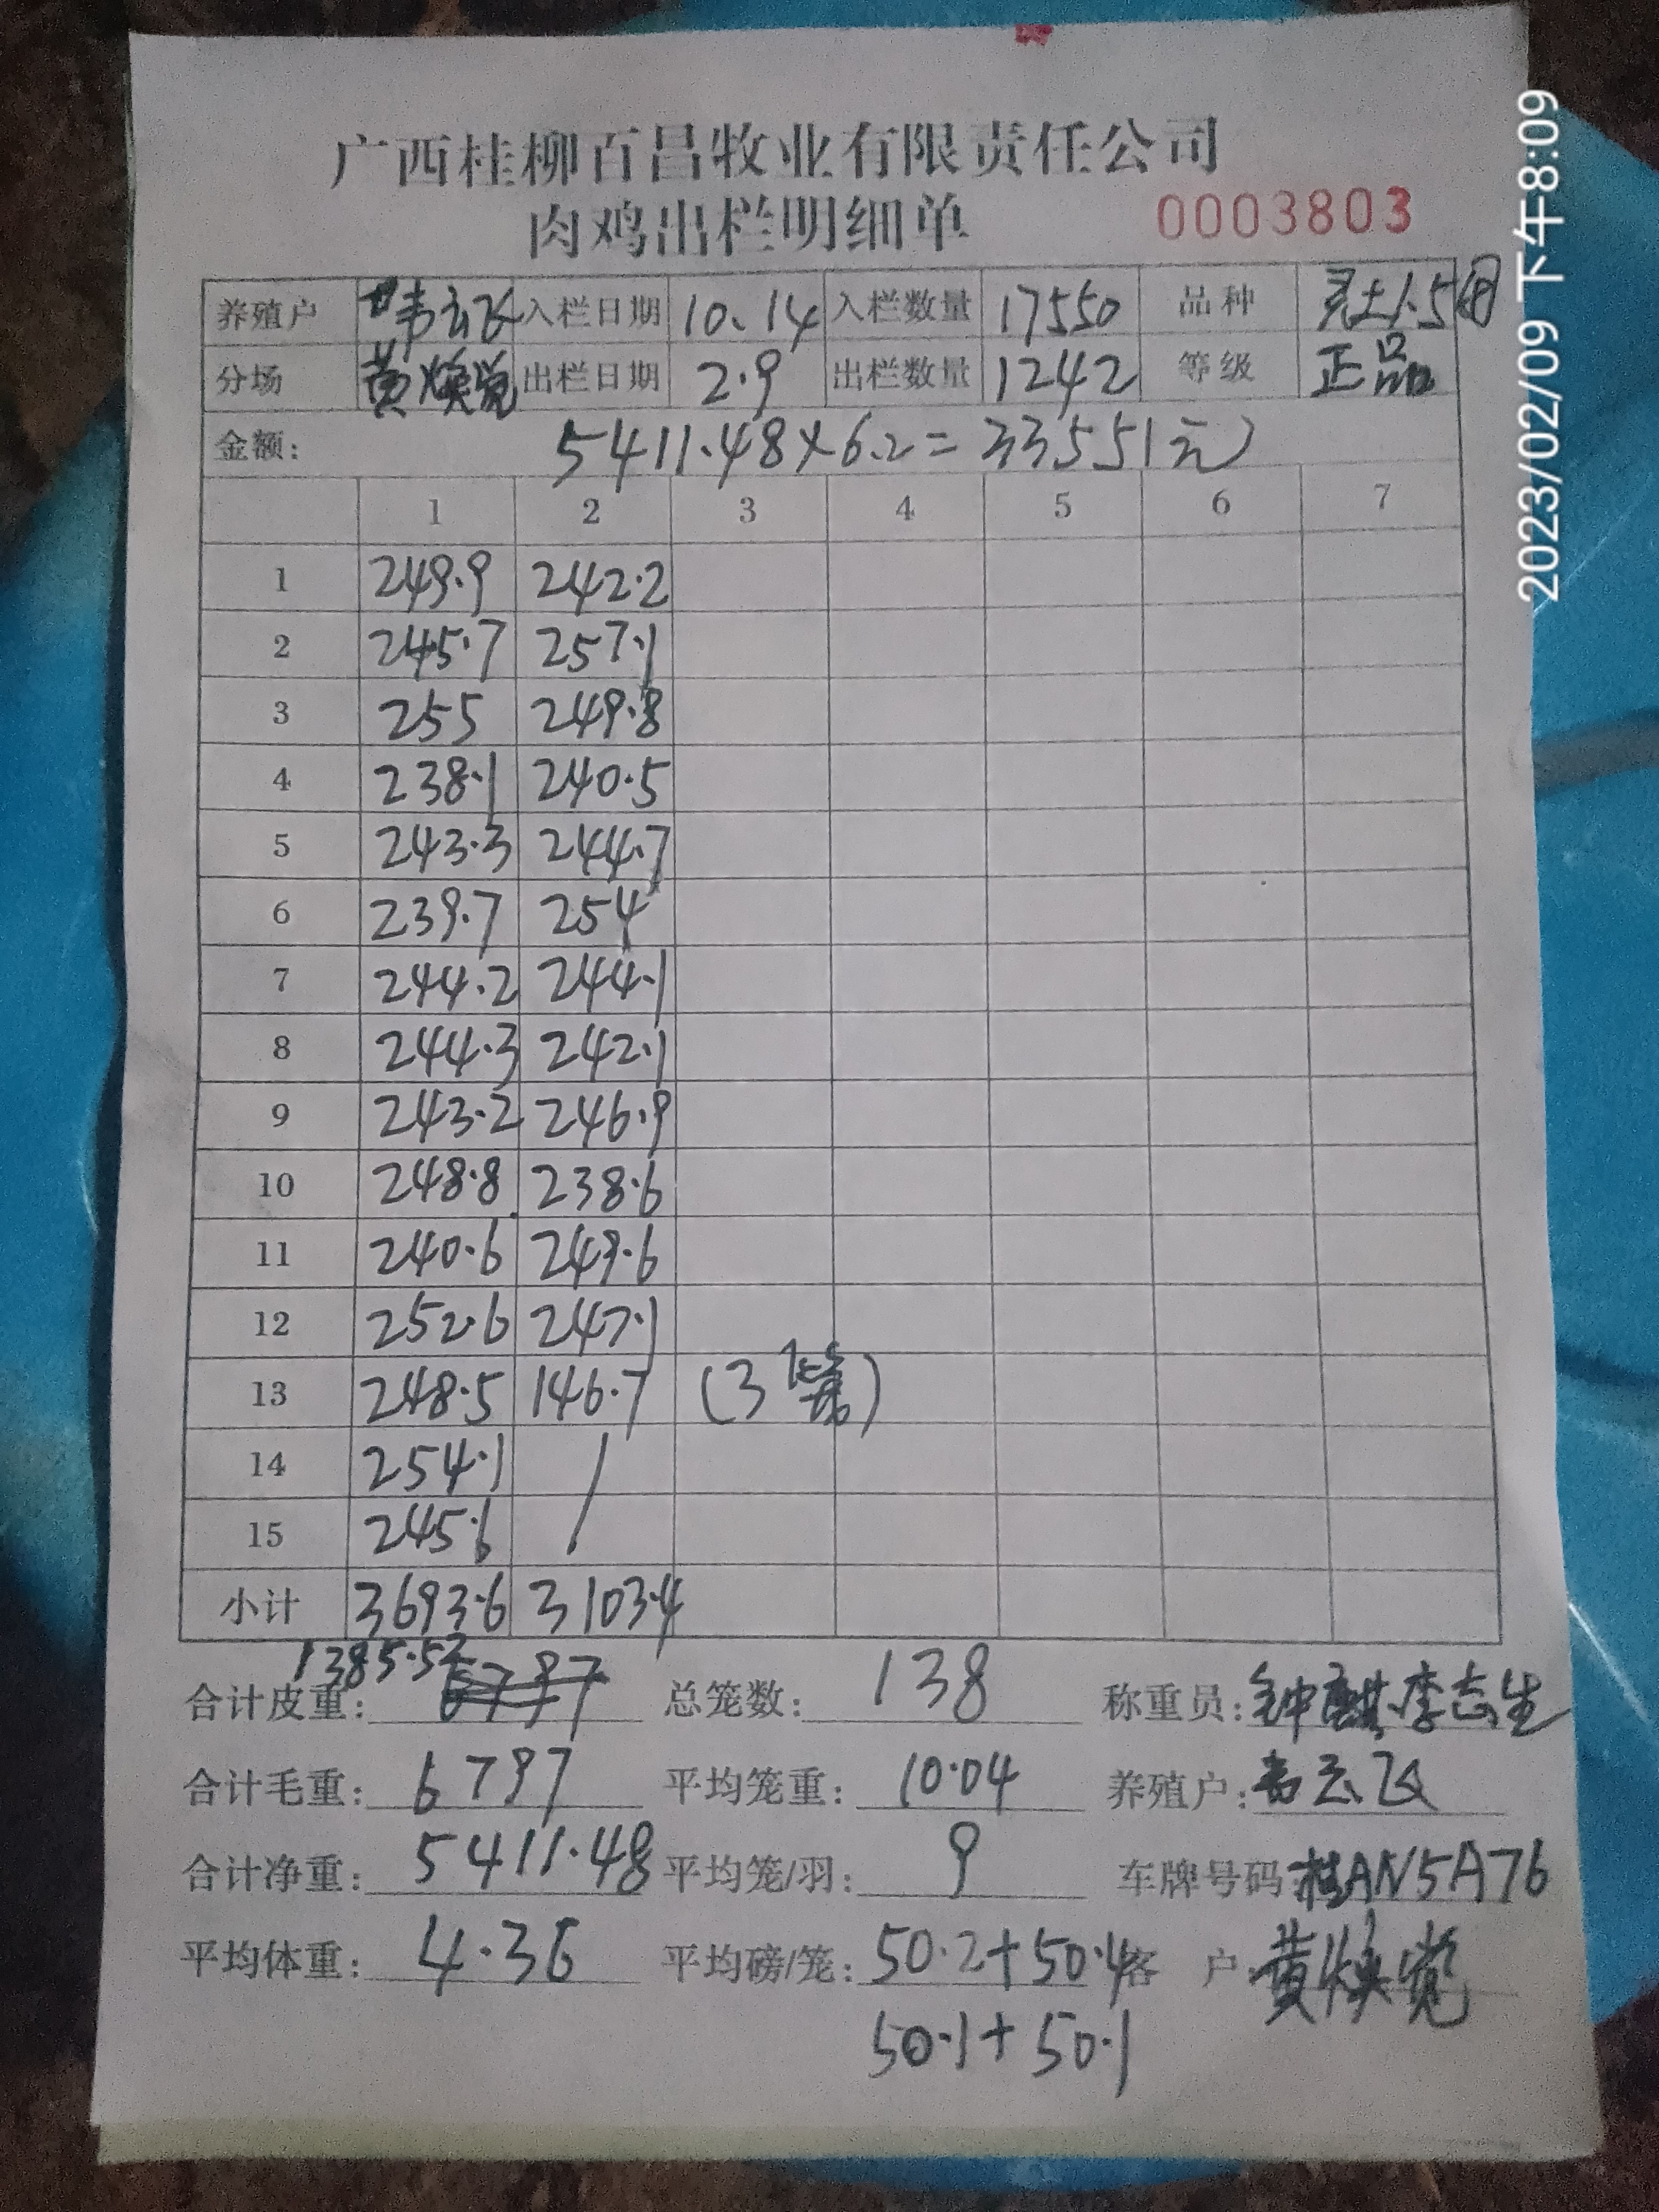 广西桂柳百昌牧业有限责任公司
肉鸡出栏明细单 0003803
养殖户 韦云飞 入栏日期 10.14 入栏数量 17550 品种 灵土1.5
分场 黄焕觉 出栏日期 2.9 出栏数量 1242 等级 正品
金额: 5411.48×6.2=33551元
1 2 3 4 5 6 7
1 249.9 242.2
2 245.7 257.1
3 255 249.8
4 238.1 240.5
5 243.3 244.7
6 239.7 254
7 244.2 244.1
8 244.3 242.1
9 243.2 246.9
10 248.8 238.6
11 240.6 249.6
12 252.6 247.1
13 248.5 146.7 (3
14 254.1 /
15 245.6 /
小计 3693.6 3103.4
合计皮重: 1385.52 6797 总笼数: 138 称重员: 钟麒 李志生
合计毛重: 6797 平均笼重: 10.04 养殖户: 韦云飞
合计净重: 5411.48 平均笼/羽: 9 车牌号码: 桂AN5A76
平均体重: 4.36 平均磅/笼: 50.2+50.4 客 户: 黄焕觉
50.1+50.1
2023/02/09 下午8:09